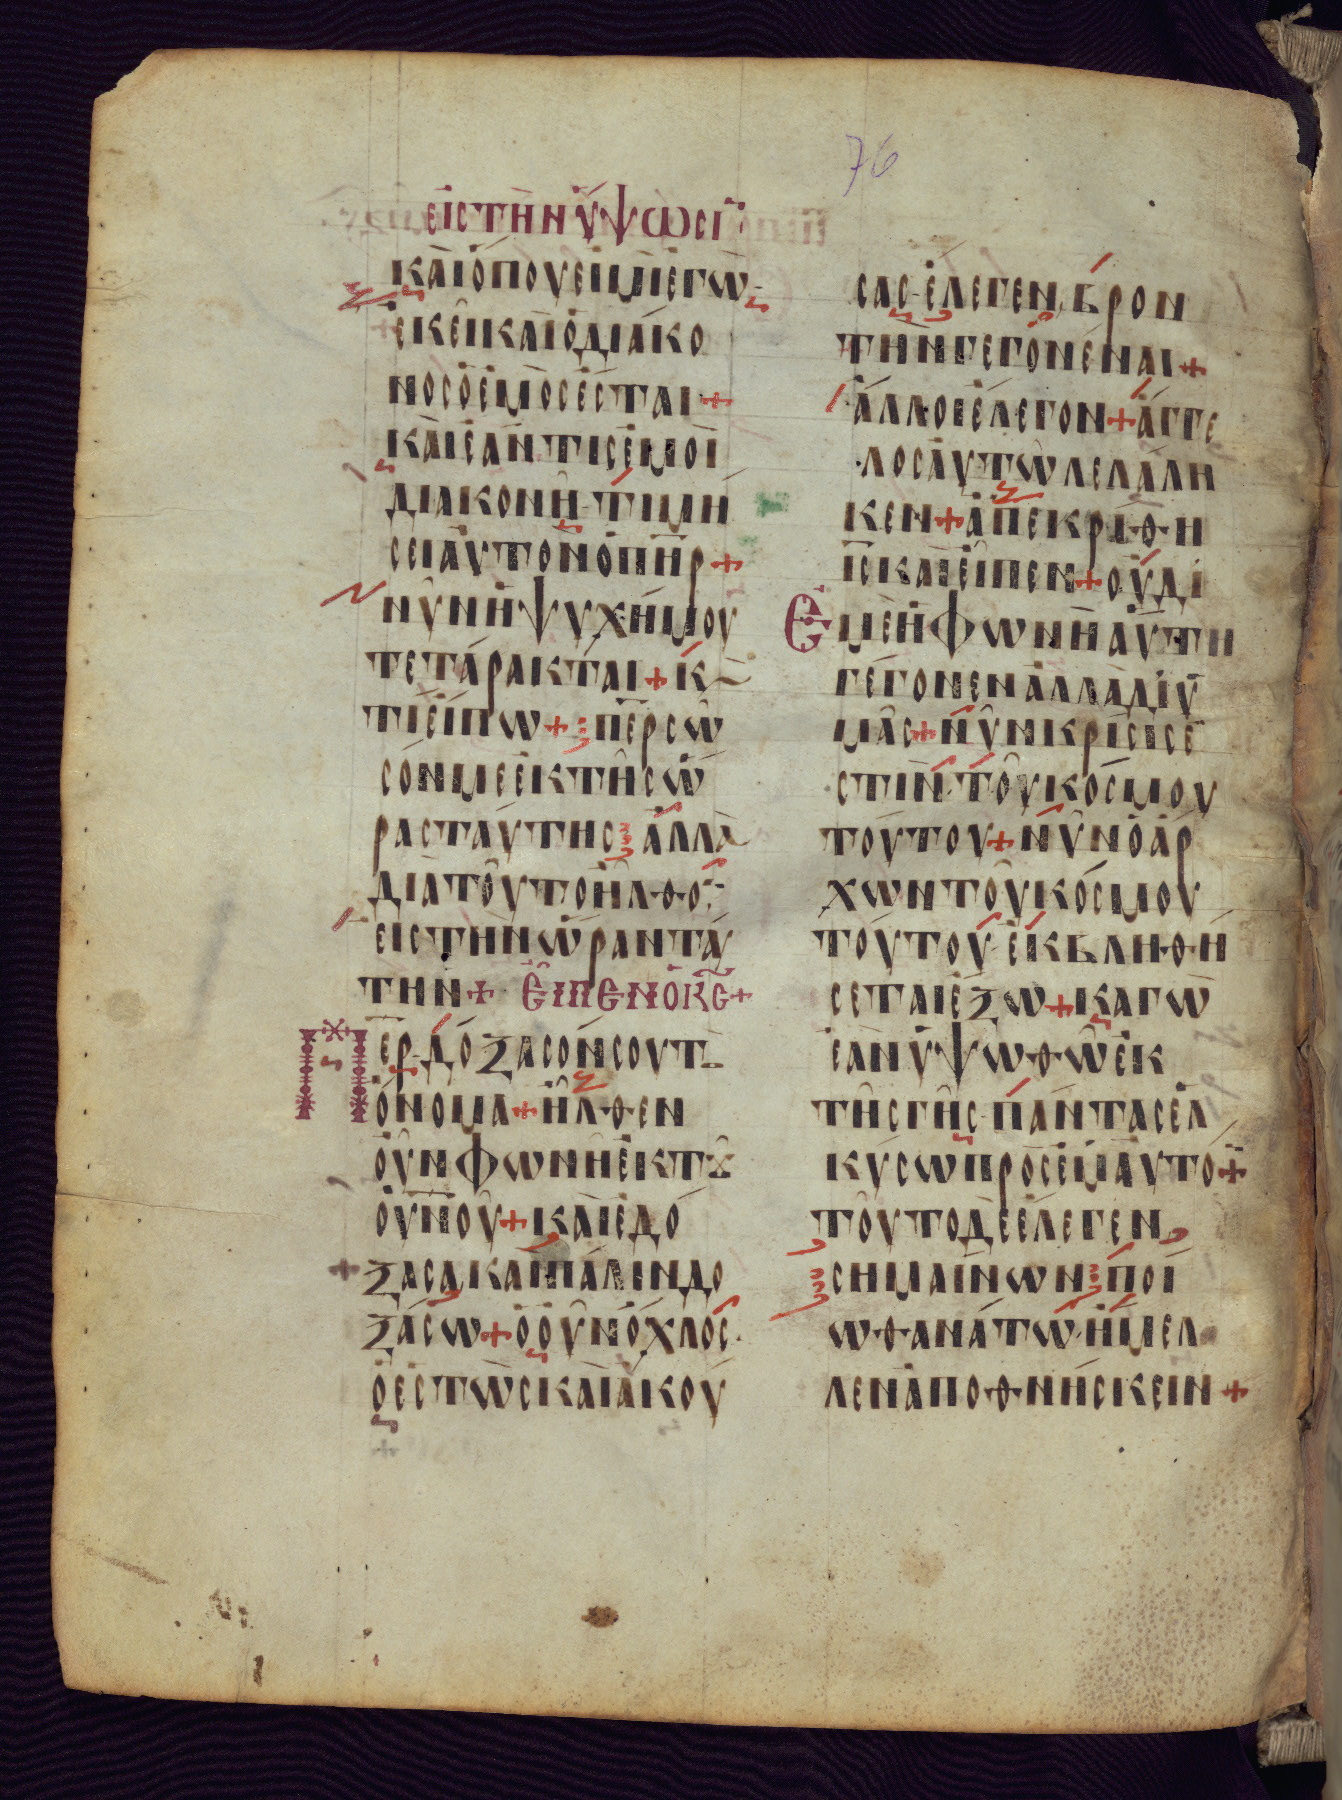 76
ΕΙΣ ΤΗΝ ΥΨΩΣΙ
ΚΑΙ ΟΠΟΥ ΕΙΜΙ ΕΓΩ
ΕΚΕΙ ΚΑΙ Ο ΔΙΑΚΟ
ΝΟΣ Ο ΕΜΟΣ ΕΣΤΑΙ +
ΚΑΙ ΕΑΝ ΤΙΣ ΕΜΟΙ
ΔΙΑΚΟΝΗ ΤΙΜΗ
ΣΕΙ ΑΥΤΟΝ Ο ΠΗΡ +
ΝΥΝ Η ΨΥΧΗ ΜΟΥ
ΤΕΤΑΡΑΚΤΑΙ + Κ
ΤΙ ΕΙΠΩ + ΠΕΡ ΣΩ
ΣΟΝ ΜΕ ΕΚ ΤΗΣ Ω
ΡΑΣ ΤΑΥΤΗΣ ΑΛΛΑ
ΔΙΑ ΤΟΥΤΟ ΗΛΘΟ
ΕΙΣ ΤΗΝ ΩΡΑΝ ΤΑΥ
ΤΗΝ + ΕΙΠΕΝ Ο ΚΣ +
ΠΕΡ ΔΟΞΑΣΟΝ ΣΟΥ Τ
ΟΝΟΜΑ + ΗΛΘΕΝ
ΟΥΝ ΦΩΝΗ ΕΚ ΤΟΥ
ΟΥΝΟΥ + ΚΑΙ ΕΔΟ
ΞΑΣΑ ΚΑΙ ΠΑΛΙΝ ΔΟ
ΞΑΣΩ + Ο ΟΥΝ ΟΧΛΟΣ
Ο ΕΣΤΩΣ ΚΑΙ ΑΚΟΥ
ΣΑΣ ΕΛΕΓΕΝ ΒΡΟΝ
ΤΗΝ ΓΕΓΟΝΕΝΑΙ +
ΑΛΛΟΙ ΕΛΕΓΟΝ + ΑΓΓΕ
ΛΟΣ ΑΥΤΩ ΛΕΛΑΛΗ
ΚΕΝ + ΑΠΕΚΡΙΘΗ
ΙΣ ΚΑΙ ΕΙΠΕΝ + ΟΥ ΔΙ
ΕΜΕ Η ΦΩΝΗ ΑΥΤΗ
ΓΕΓΟΝΕΝ ΑΛΛΑ ΔΙ Υ
ΜΑΣ + ΝΥΝ ΚΡΙΣΙΣ Ε
ΣΤΙΝ ΤΟΥ ΚΟΣΜΟΥ
ΤΟΥΤΟΥ + ΝΥΝ Ο ΑΡ
ΧΩΝ ΤΟΥ ΚΟΣΜΟΥ
ΤΟΥΤΟΥ ΕΚΒΛΗΘΗ
ΣΕΤΑΙ ΕΞΩ + ΚΑΓΩ
ΕΑΝ ΥΨΩΘΩ ΕΚ
ΤΗΣ ΓΗΣ ΠΑΝΤΑΣ ΕΛ
ΚΥΣΩ ΠΡΟΣ ΕΜΑΥΤΟ +
ΤΟΥΤΟ ΔΕ ΕΛΕΓΕΝ
ΣΗΜΑΙΝΩΝ ΠΟΙ
Ω ΘΑΝΑΤΩ ΗΜΕΛ
ΛΕΝ ΑΠΟΘΝΗΣΚΕΙΝ +